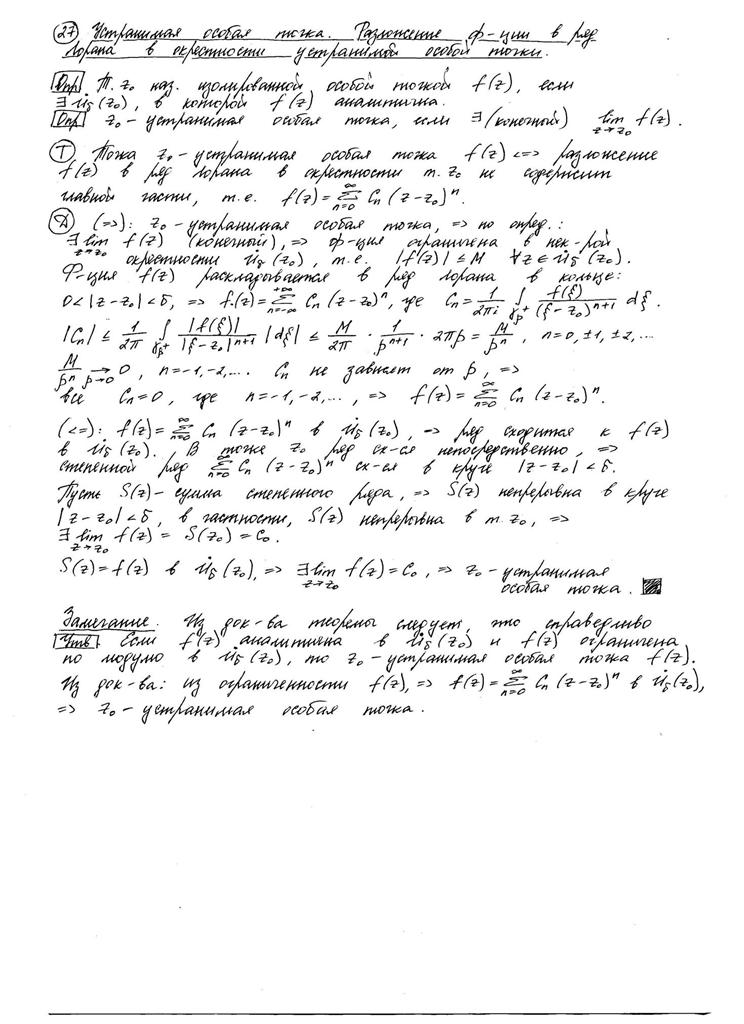 (27) Устранимая особая точка. Разложение ф-ции в ряд
Лорана в окрестности устранимой особой точки.
Опр Т. z₀ наз. изолированной особой точкой f(z), если
∃ U̇_δ(z₀), в которой f(z) аналитична.
Опр z₀ - устранимая особая точка, если ∃ (конечный) lim_{z→z₀} f(z).
(Т) Точка z₀ - устранимая особая точка f(z) <=> разложение
f(z) в ряд Лорана в окрестности т. z₀ не содержит
главной части, т.е. f(z) = ∑_{n=0}^{∞} Cₙ (z-z₀)ⁿ.
(Д) (=>): z₀ - устранимая особая точка, => по опред.:
∃ lim_{z→z₀} f(z) (конечный), => ф-ция ограничена в нек-рой
окрестности U̇_δ(z₀), т.е. |f(z)| ≤ M ∀z∈U̇_δ(z₀).
Ф-ция f(z) раскладывается в ряд Лорана в кольце:
0<|z-z₀|<δ, => f(z) = ∑_{n=-∞}^{+∞} Cₙ (z-z₀)ⁿ, где Cₙ = 1/(2πi) ∫_{γρ⁺} f(ξ)/(ξ-z₀)ⁿ⁺¹ dξ.
|Cₙ| ≤ 1/(2π) ∫_{γρ⁺} |f(ξ)|/|ξ-z₀|ⁿ⁺¹ |dξ| ≤ M/(2π) · 1/ρⁿ⁺¹ · 2πρ = M/ρⁿ, n=0,±1,±2,...
M/ρⁿ →_{ρ→0} 0, n=-1,-2,... Cₙ не зависят от ρ, =>
все Cₙ=0, где n=-1,-2,..., => f(z) = ∑_{n=0}^{∞} Cₙ (z-z₀)ⁿ.
(<=): f(z) = ∑_{n=0}^{∞} Cₙ (z-z₀)ⁿ в U̇_δ(z₀), => ряд сходится к f(z)
в U̇_δ(z₀). В точке z₀ ряд сх-ся непосредственно, =>
степенной ряд ∑_{n=0}^{∞} Cₙ (z-z₀)ⁿ сх-ся в круге |z-z₀|<δ.
Пусть S(z) - сумма степенного ряда, => S(z) непрерывна в круге
|z-z₀|<δ, в частности, S(z) непрерывна в т. z₀, =>
∃ lim_{z→z₀} f(z) = S(z₀) = C₀.
S(z) = f(z) в U̇_δ(z₀), => ∃ lim_{z→z₀} f(z) = C₀, => z₀ - устранимая
особая точка.
Замечание. Из док-ва теоремы следует, что справедливо
Утв Если f(z) аналитична в U̇_δ(z₀) и f(z) ограничена
по модулю в U̇_δ(z₀), то z₀ - устранимая особая точка f(z).
Из док-ва: из ограниченности f(z), => f(z) = ∑_{n=0}^{∞} Cₙ (z-z₀)ⁿ в U̇_δ(z₀),
=> z₀ - устранимая особая точка.